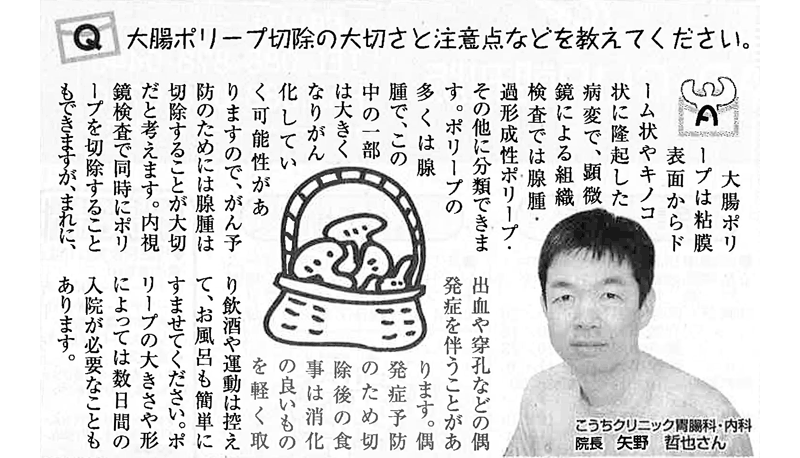 Q 大腸ポリープ切除の大切さと注意点などを教えてください。
A
大腸ポリ
ープは粘膜
表面からド
ーム状やキノコ
状に隆起した
病変で、顕微
鏡による組織
検査では腺腫・
過形成性ポリープ・
その他に分類できま
す。ポリープの
多くは腺
腫で、この
中の一部
は大きく
なりがん
化してい
く可能性があ
りますので、がん予
防のためには腺腫は
切除することが大切
だと考えます。内視
鏡検査で同時にポリ
ープを切除すること
もできますが、まれに、
出血や穿孔などの偶
発症を伴うことがあ
ります。偶
発症予防
のため切
除後の食
事は消化
の良いもの
を軽く取
り飲酒や運動は控え
て、お風呂も簡単に
すませてください。ポ
リープの大きさや形
によっては数日間の
入院が必要なことも
あります。
こうちクリニック胃腸科・内科
院長 矢野 哲也さん